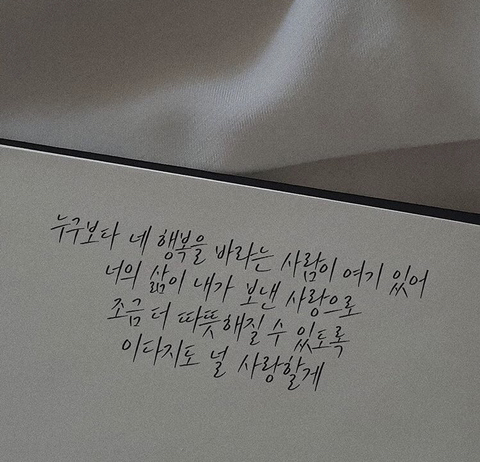 누구보다 네 행복을 바라는 사람이 여기 있어
너의 삶이 내가 보낸 사랑으로
조금 더 따뜻해질 수 있도록
이다지도 널 사랑할게